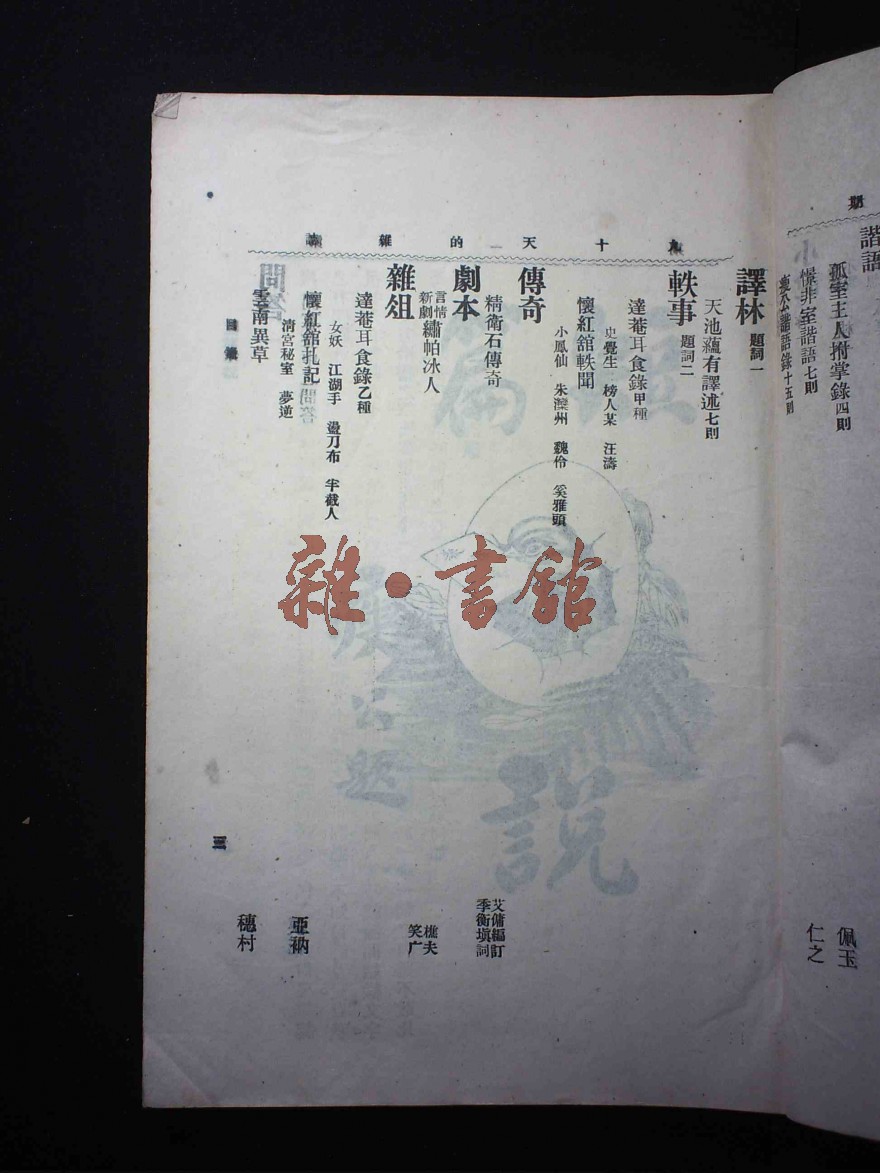 期
諧語
孤室主人拊掌錄四則
佩玉
懷非室諧語七則
仁之
諧語錄十五則
十天的雜誌
譯林 題詞一
天池蘊有譯述七則
軼事 題詞二
達菴耳食錄甲種
史覺生 榜人某 汪濤
懷紅舘軼聞
小鳳仙 朱灤州 魏伶 奚雅頭
傳奇
精衛石傳奇
艾傭編訂
季衡塡詞
劇本
言情新劇 繡帕冰人
樵夫
笑广
雜俎
達菴耳食錄乙種
女妖 江湖手 盪刀布 半截人
懷紅舘扎記
亞衲
淸宮秘室 夢逆
雲南異草
穗村
目錄
三
篇
說
雜·書館